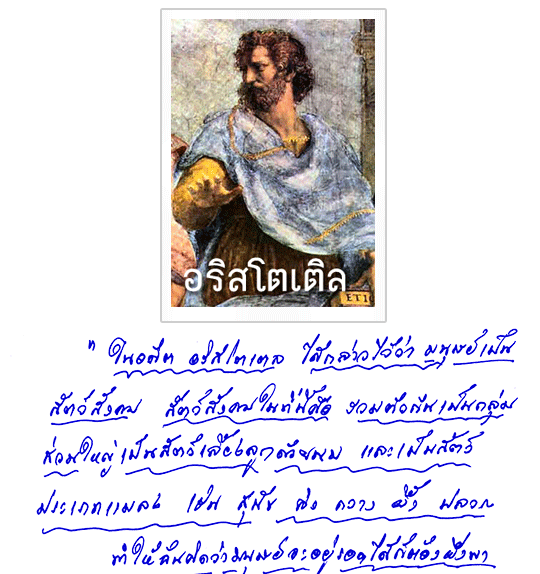 อริสโตเติล
ETI
" ในอดีต อริสโตเติล ได้กล่าวไว้ว่า มนุษย์เป็น
สัตว์สังคม สัตว์สังคมในที่นี้คือ รวมตัวกันเป็นกลุ่ม
ส่วนใหญ่เป็นสัตว์เลี้ยงลูกด้วยนม และเป็นสัตว์
ประเภทแมลง เช่น สุนัข ลิง กวาง ผึ้ง ปลวก
ทำให้ฉันคิดว่ามนุษย์จะอยู่รอดได้ก็ต้องพึ่งพา